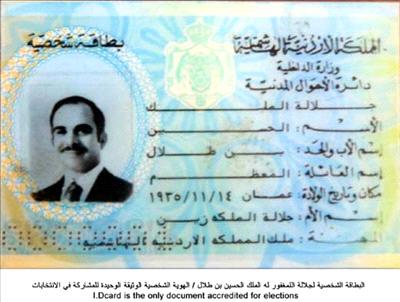 بطاقة شخصية
المملكة الاردنية الهاشمية
وزارة الداخلية
دائرة الأحوال المدنية
جلالة الملك
الأسم : الحسين
إسم الأب والجد : بن طلال
إسم العائلة : المعظم
مكان وتاريخ الولادة : عمان ١٩٣٥/١١/١٤
إسم الأم : جلالة الملكه زين
المهنة : ملك المملكه الاردنيه الهاشميه
البطاقة الشخصية لجلالة المغفور له الملك الحسين بن طلال / الهوية الشخصية الوثيقة الوحيدة للمشاركة في الانتخابات
I.Dcard is the only document accredited for elections